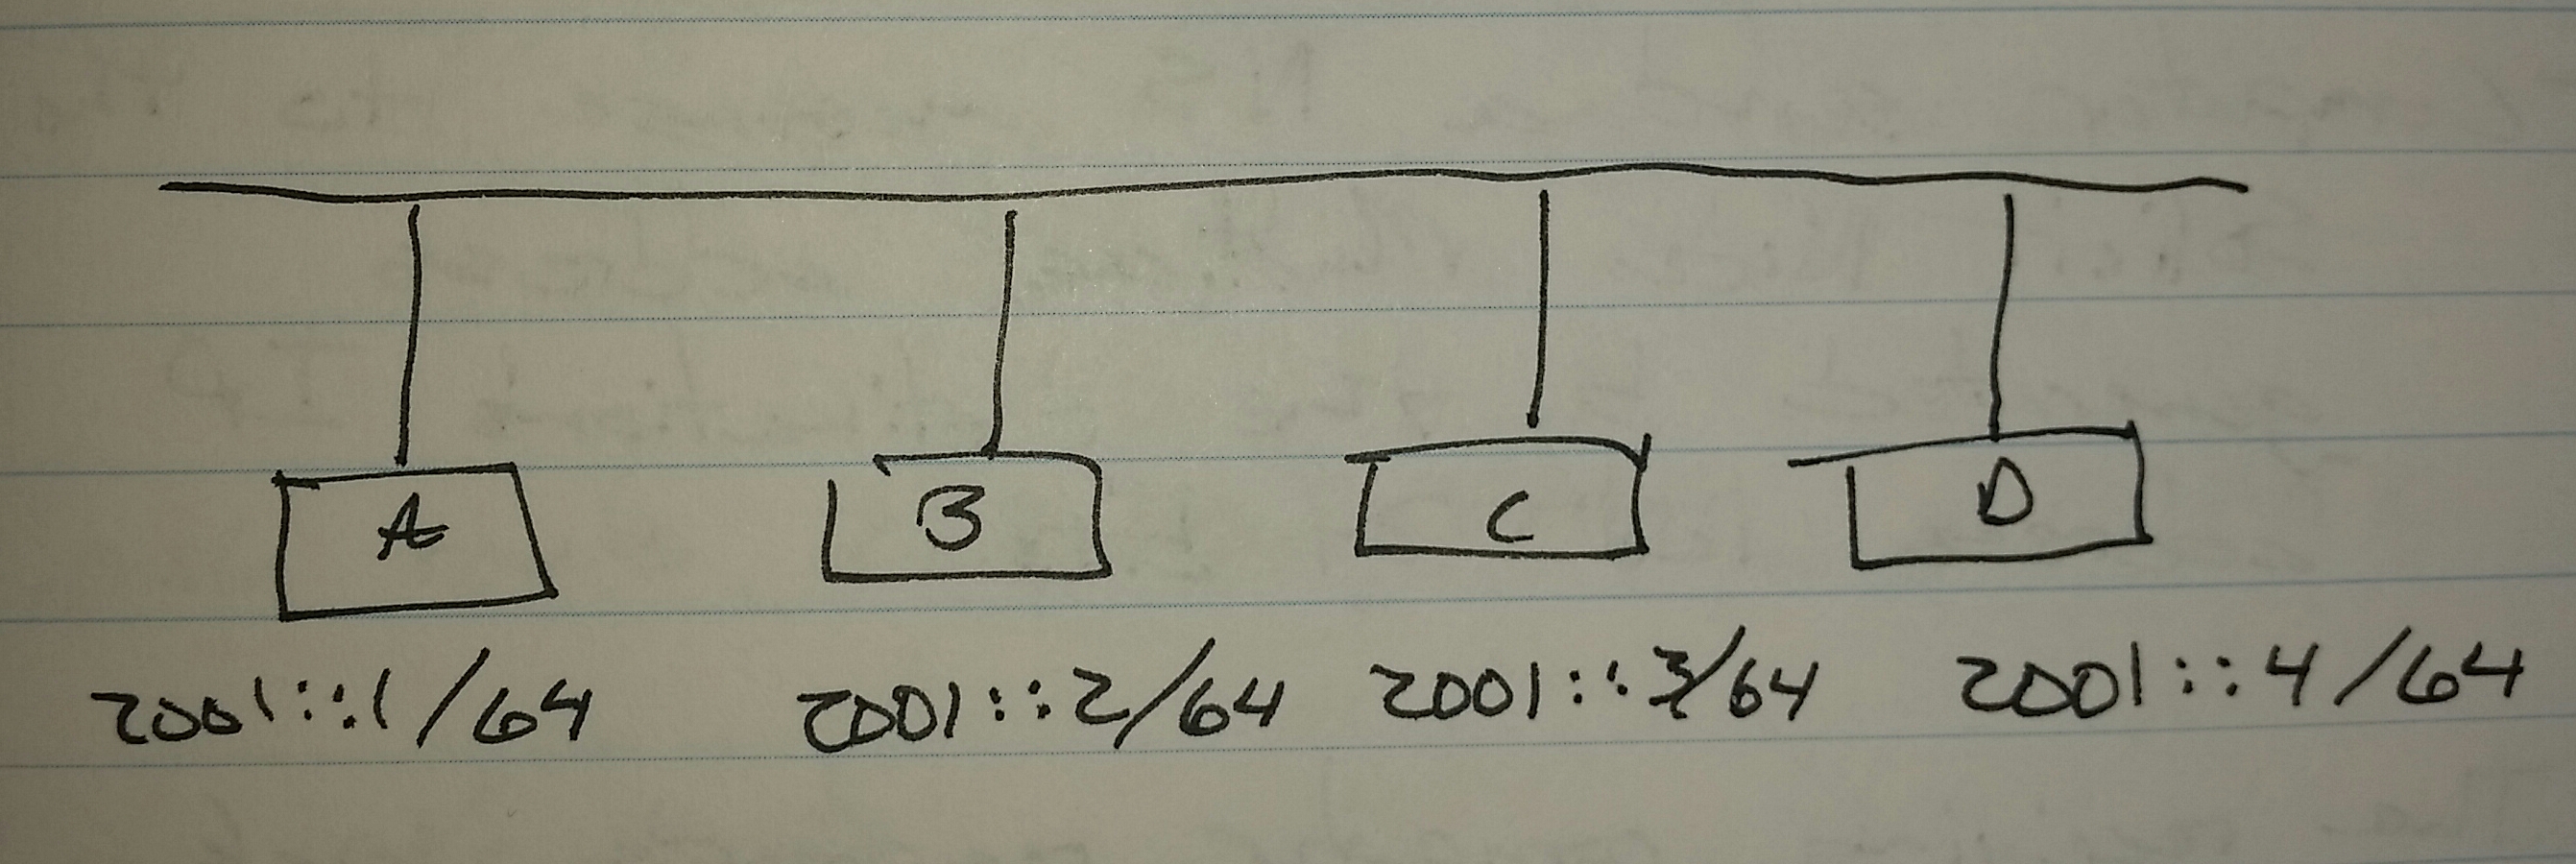 A B C D
2001::1/64 2001::2/64 2001::3/64 2001::4/64